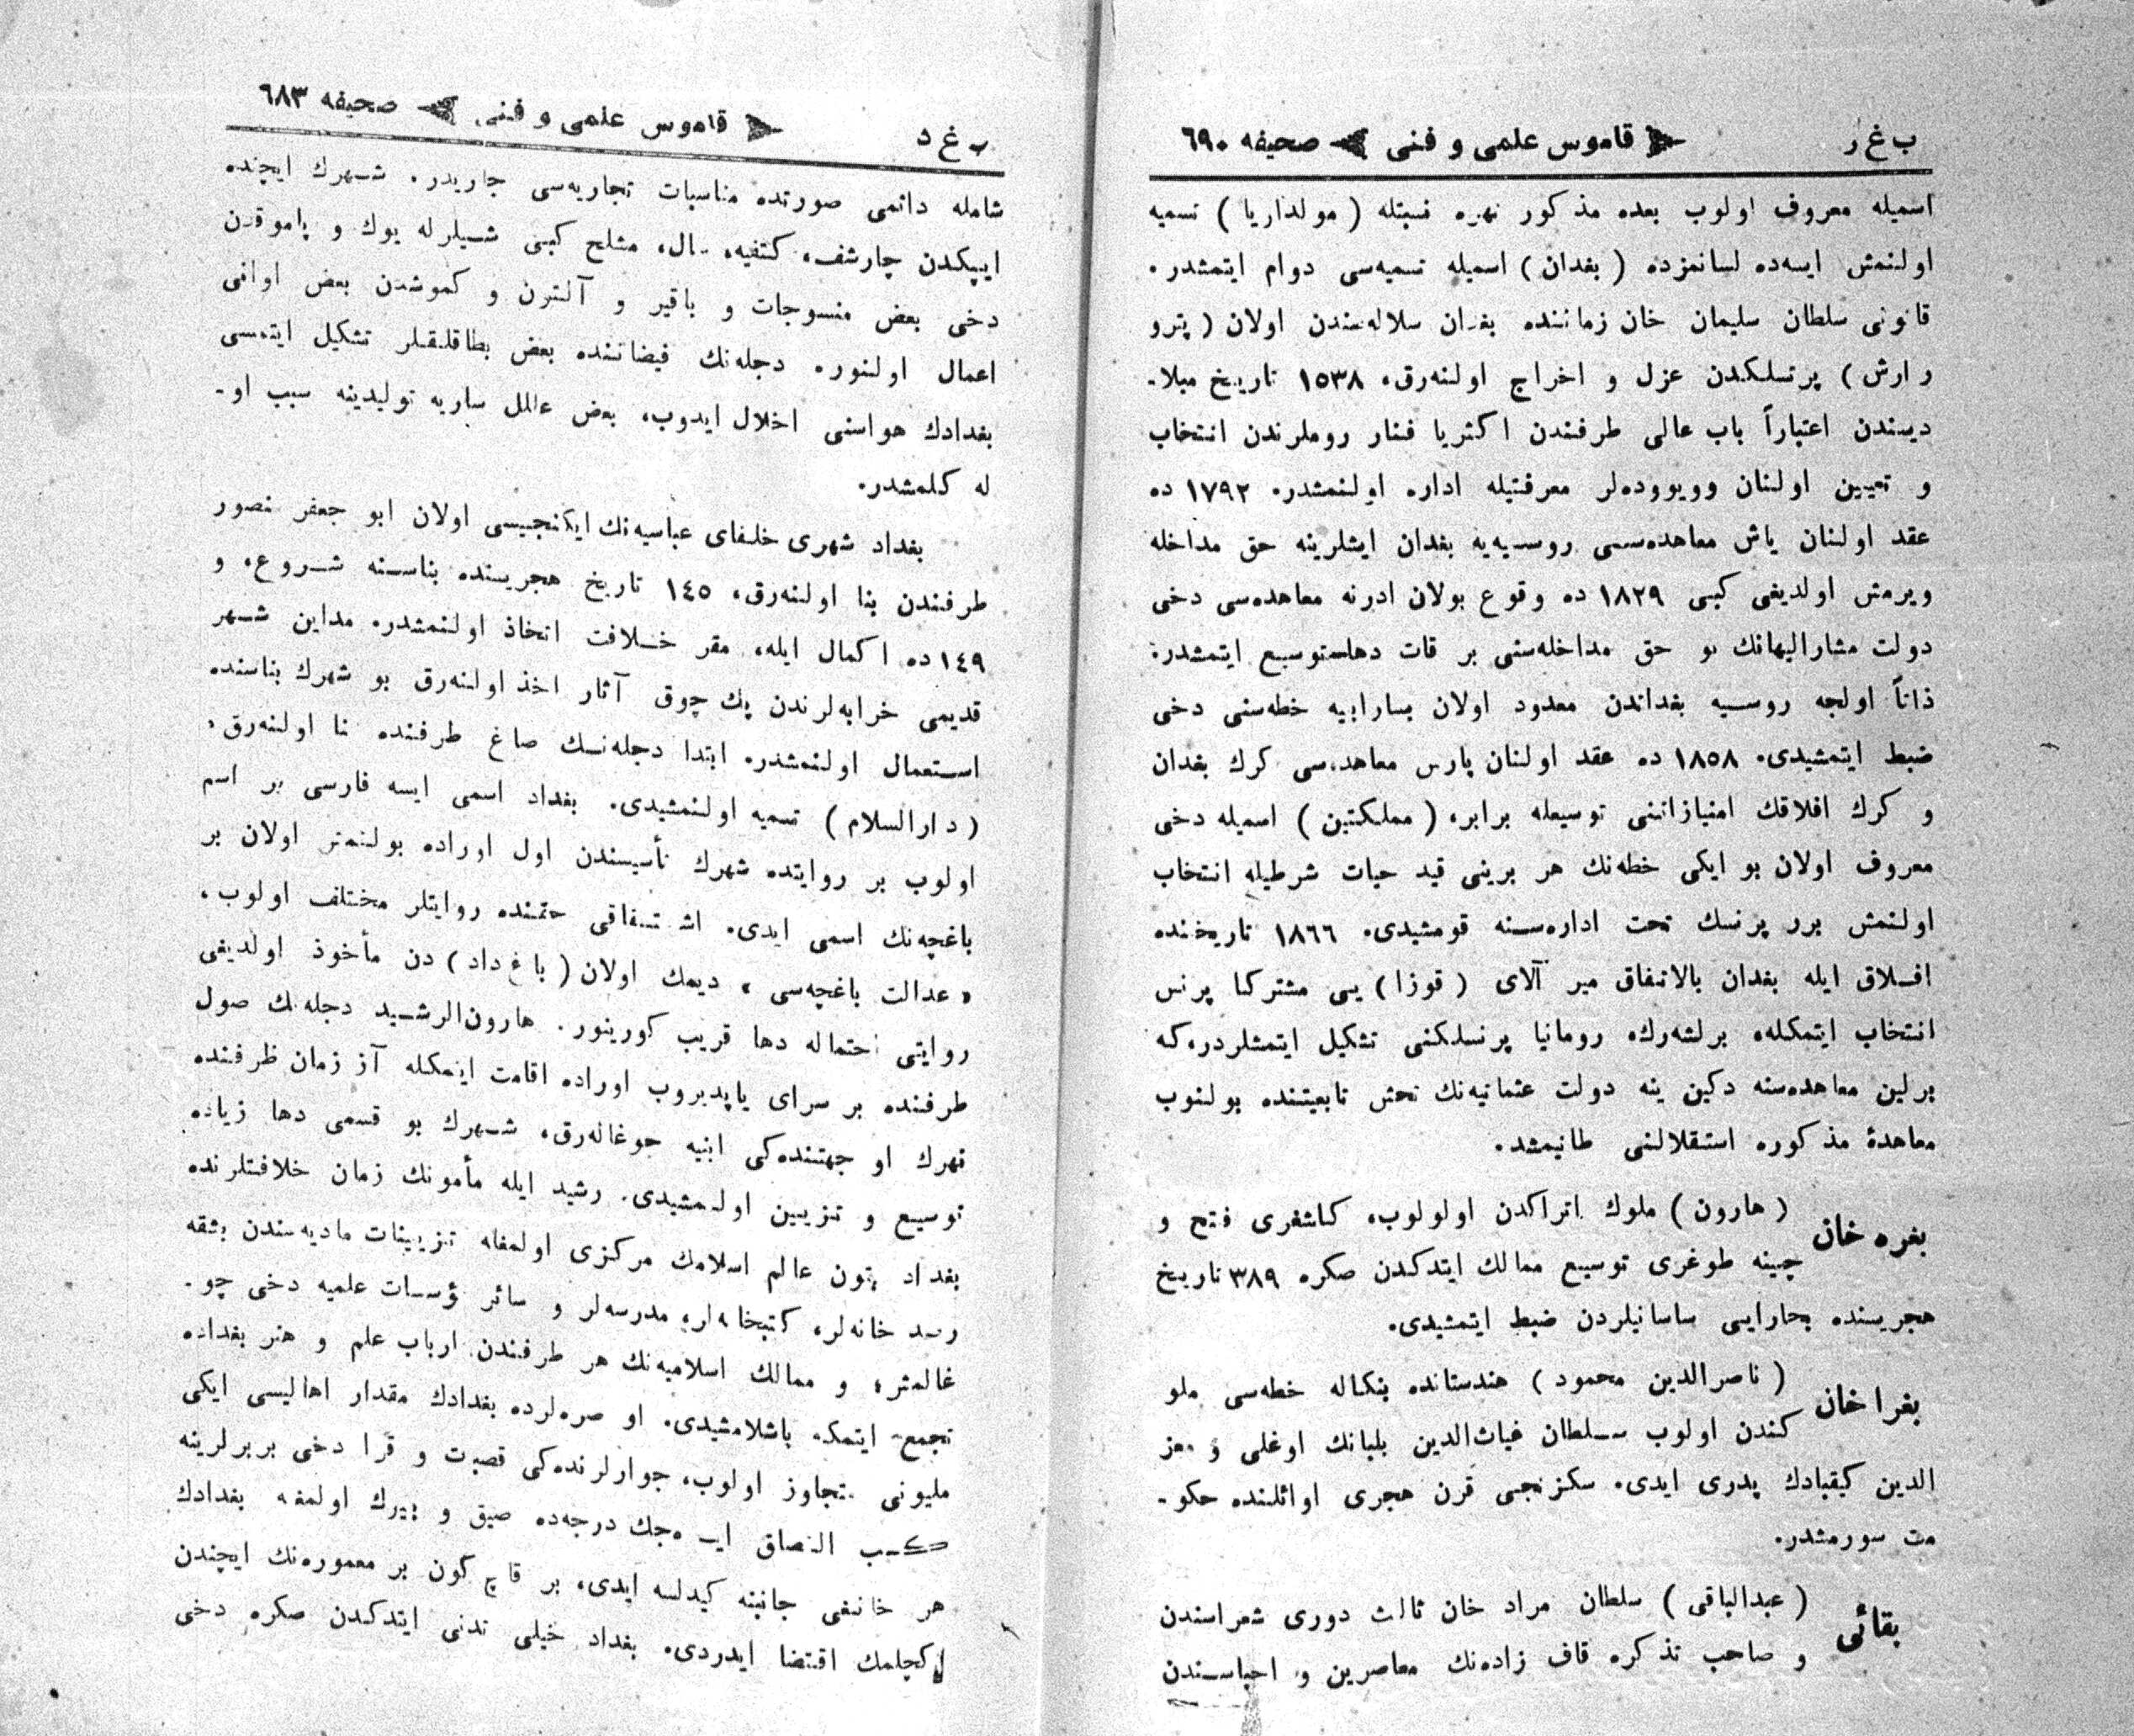 ب غ ر قاموس علمى و فنى صحيفه ٦٩٠
اسميله معروف اولوب بعده مذكور نهره نسبتله ( مولداريا ) تسميه
اولنمش ايسه‌ده لسانمزده ( بغدان ) اسميله تسميه‌سى دوام ايتمشدر.
قانونى سلطان سليمان خان زماننده بغدان سلاله‌سندن اولان ( پترو
رارش ) پرنسلكدن عزل و اخراج اولنه‌رق، ١٥٣٨ تاريخ ميلا-
ديسندن اعتباراً باب عالى طرفندن اكثريا فنار روملرندن انتخاب
و تعيين اولنان وويووده‌لر معرفتيله اداره اولنمشدر. ١٧٩٢ ده
عقد اولنان ياش معاهده‌سى روسيه‌يه بغدان ايشلرينه حق مداخله
ويرمش اولديغى كبى ١٨٢٩ ده وقوع بولان ادرنه معاهده‌سى دخى
دولت مشاراليهانك بو حق مداخله‌سنى بر قات دها توسيع ايتمشدر.
ذاتاً اولجه روسيه بغداندن معدود اولان بسارابيه خطه‌سنى دخى
ضبط ايتمشيدى. ١٨٥٨ ده عقد اولنان پارس معاهده‌سى كرك بغدان
و كرك افلاقك امتيازاتنى توسيعله برابر، ( مملكتين ) اسميله دخى
معروف اولان بو ايكى خطه‌نك هر برينى قيد حيات شرطيله انتخاب
اولنمش برر پرنسك تحت اداره‌سنه قومشيدى. ١٨٦٦ تاريخنده
افلاق ايله بغدان بالاتفاق مير آلاى ( قوزا ) يى مشتركا پرنس
انتخاب ايتمكله، برلشه‌رك، رومانيا پرنسلكنى تشكيل ايتمشلردر، كه
برلين معاهده‌سنه دكين ينه دولت عثمانيه‌نك تحت تابعيتنده بولنوب
معاهدۀ مذكوره استقلالنى طانيمشد.
بغره خان ( هارون ) ملوك اتراكدن اولولوب، كاشغرى فتح و
چينه طوغرى توسيع ممالك ايتدكدن صكره ٣٨٩ تاريخ
هجريسنده بخارايى ساسانيلردن ضبط ايتمشيدى.
بغرا خان ( ناصرالدين محمود ) هندستانده بنكاله خطه‌سى ملو
كندن اولوب سلطان غياث‌الدين بلبانك اوغلى و معز
الدين كيقبادك پدرى ايدى. سكزنجى قرن هجرى اوائلنده حكو-
مت سورمشدر.
بقائى ( عبدالباقى ) سلطان مراد خان ثالث دورى شعراسندن
و صاحب تذكره قاف زاده‌نك معاصرين و احباسندن
ب غ د قاموس علمى و فنى صحيفه ٦٨٣
شامله دائمى صورتده مناسبات تجاريه‌سى جاريدر. شهرك ايچنده
ايپكدن چارشف، كتفيه، شال، مشلح كبى شيلرله يوك و پاموقدن
دخى بعض منسوجات و باقير و آلتون و كموشدن بعض اوانى
اعمال اولنور. دجله‌نك فيضاننده بعض بطاقلقلر تشكيل ايتمسى
بغدادك هواسنى اخلال ايدوب، بعض علل ساريه توليدينه سبب او-
له كلمشدر.
بغداد شهرى خلفاى عباسيه‌نك ايكنجيسى اولان ابو جعفر نصور
طرفندن بنا اولنه‌رق، ١٤٥ تاريخ هجريسنده بناسنه شروع، و
١٤٩ ده اكمال ايله، مقر خلافت اتخاذ اولنمشدر. مداين شهر
قديمى خرابه‌لرندن پك چوق آثار اخذ اولنه‌رق بو شهرك بناسنده
استعمال اولنمشدر. ابتدا دجله‌نك صاغ طرفنده بنا اولنه‌رق،
( دارالسلام ) تسميه اولنمشيدى. بغداد اسمى ايسه فارسى بر اسم
اولوب بر روايتده شهرك تأسيسندن اول اوراده بولنمش اولان بر
باغچه‌نك اسمى ايدى. اشتقاقى حقنده روايتلر مختلف اولوب،
« عدالت باغچه‌سى » ديمك اولان ( باغ داد ) دن مأخوذ اولديغى
روايتى احتماله دها قريب كورينور. هارون‌الرشيد دجله‌نك صول
طرفنده بر سراى ياپديروب اوراده اقامت ايتمكله آز زمان ظرفنده
نهرك او جهتنده‌كى ابنيه چوغاله‌رق، شهرك بو قسمى دها زياده
توسيع و تزيين اولنمشيدى. رشيد ايله مأمونك زمان خلافتلرنده
بغداد بتون عالم اسلامك مركزى اولمغله تزيينات ماديه‌سندن بشقه
رصد خانه‌لر، كتبخانه‌لر، مدرسه‌لر و سائر مؤسسات علميه دخى چو-
غالمش، و ممالك اسلاميه‌نك هر طرفندن ارباب علم و هنر بغداده
تجمع ايتمكه باشلامشيدى. او صره‌لرده بغدادك مقدار اهاليسى ايكى
مليونى متجاوز اولوب، جوارلرنده‌كى قصبات و قرا دخى بربرلرينه
كسب التصاق ايده‌جك درجه‌ده صيق و بيوك اولمغله بغدادك
هر خانغى جانبنه كيدلسه ايدى، بر قاچ كون بر معموره‌نك ايچندن
كچلمك اقتضا ايدردى. بغداد خيلى تدنى ايتدكدن صكره دخى